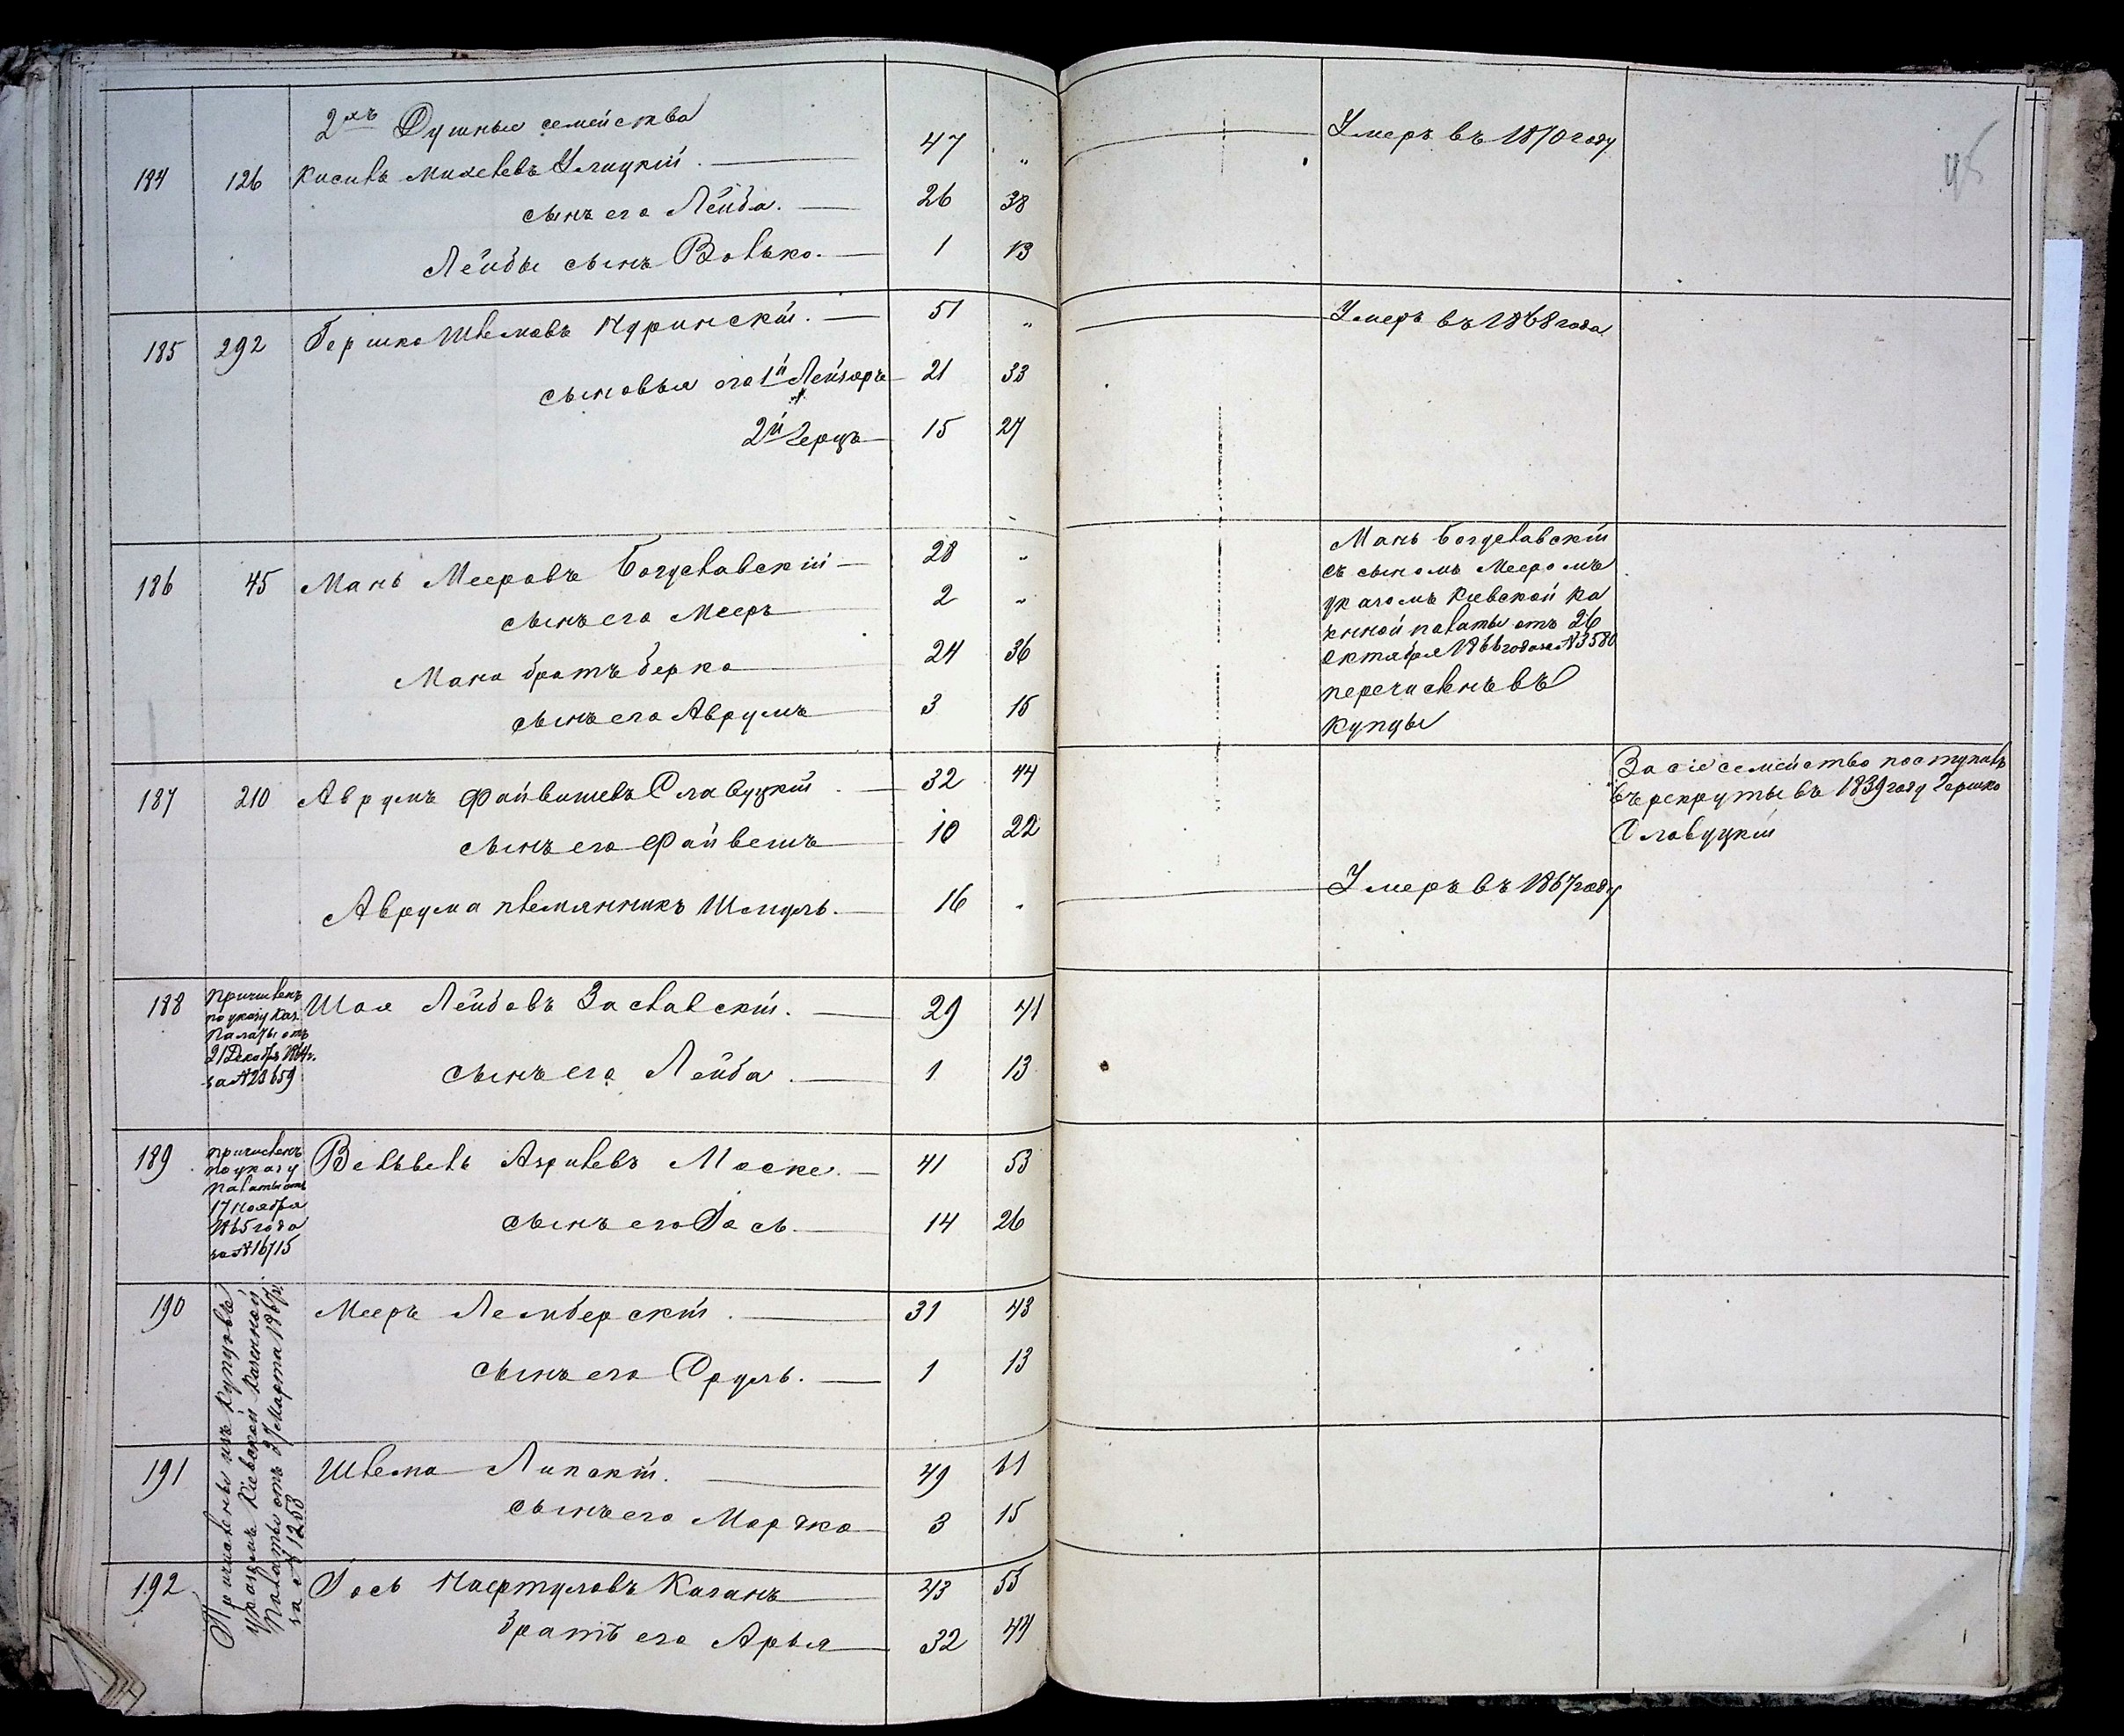 2хъ Душные семейства
184 126 Кисиль Михелевъ Улицкій. 47 „ Умеръ въ 1870 году
сынъ его Лейба. 26 38
Лейбы сынъ Волько. 1 13
185 292 Бершко Шлемовъ Нуринскій. 51 „ Умеръ въ 1868 года
сыновья его 1й Лейзеръ 21 33
2й Герцъ 15 27
186 45 Мань Мееровъ Богуславскій 28 „
сынъ его Мееръ 2 „
Маня братъ Берко 24 36
сынъ его Аврумъ 3 15
Мань Богуславскій
съ сыномъ Мееромъ
указомъ Кіевской Ка
зенной палаты отъ 26
октября 1866 года за № 3580
перечисленъ въ
купцы
187 210 Аврумъ Файвишевъ Славуцкій 32 44
сынъ его Файвешъ 10 22
Аврума племянникъ Шмуль. 16 „ Умеръ въ 1867 году
За сіе семейство поступилъ
въ рекруты въ 1839 году Гершко
Славуцкій
188 Шая Лейбовъ Заславскій. 29 41
сынъ его Лейба. 1 13
Причисленъ
по указу Каз.
Палаты отъ
21 Декабр. 1864 г.
за № 23659
189 Вельвель Азрилевъ Моске. 41 53
сынъ его Іось 14 26
причисленъ
по указу
Палаты отъ
17 Ноября
1865 года
за № 16715
190 Мееръ Лемберскій. 31 43
сынъ его Сруль. 1 13
191 Шлема Липскій. 49 61
сынъ его Мордко 3 15
192 Іось Нафтуловъ Каганъ 43 55
братъ его Арья 32 44
Причислены изъ Купцовъ
указомъ Кіевской Казенной
Палаты отъ 27 Марта 1867 г.
за № 1258